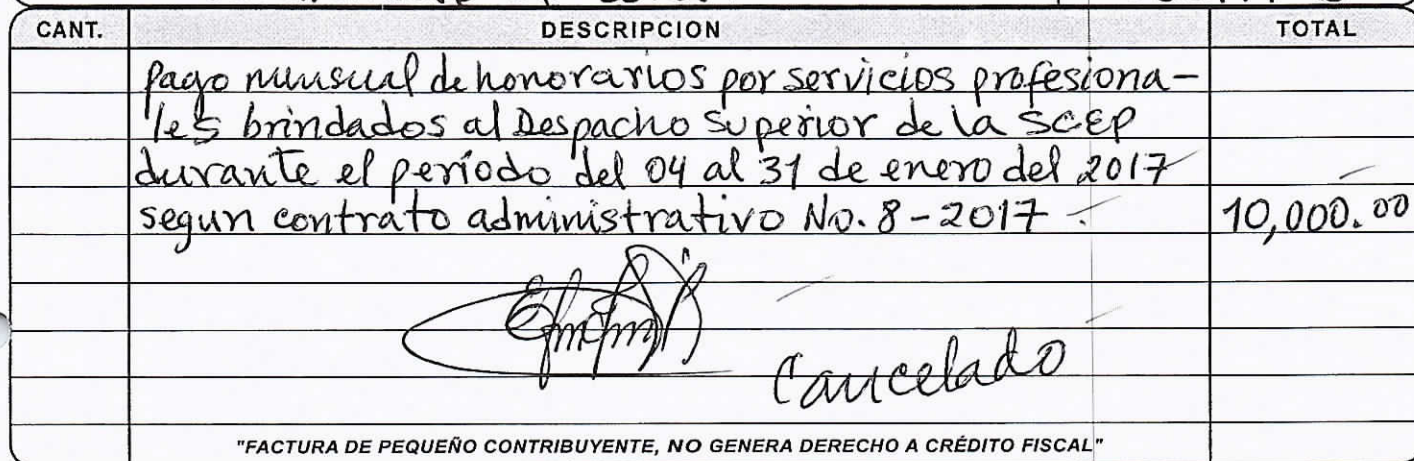 CANT. DESCRIPCION TOTAL
Pago mensual de honorarios por servicios profesiona-
les brindados al Despacho Superior de la SCEP
durante el período del 04 al 31 de enero del 2017
segun contrato administrativo No. 8-2017. 10,000.00
Cancelado
"FACTURA DE PEQUEÑO CONTRIBUYENTE, NO GENERA DERECHO A CRÉDITO FISCAL"